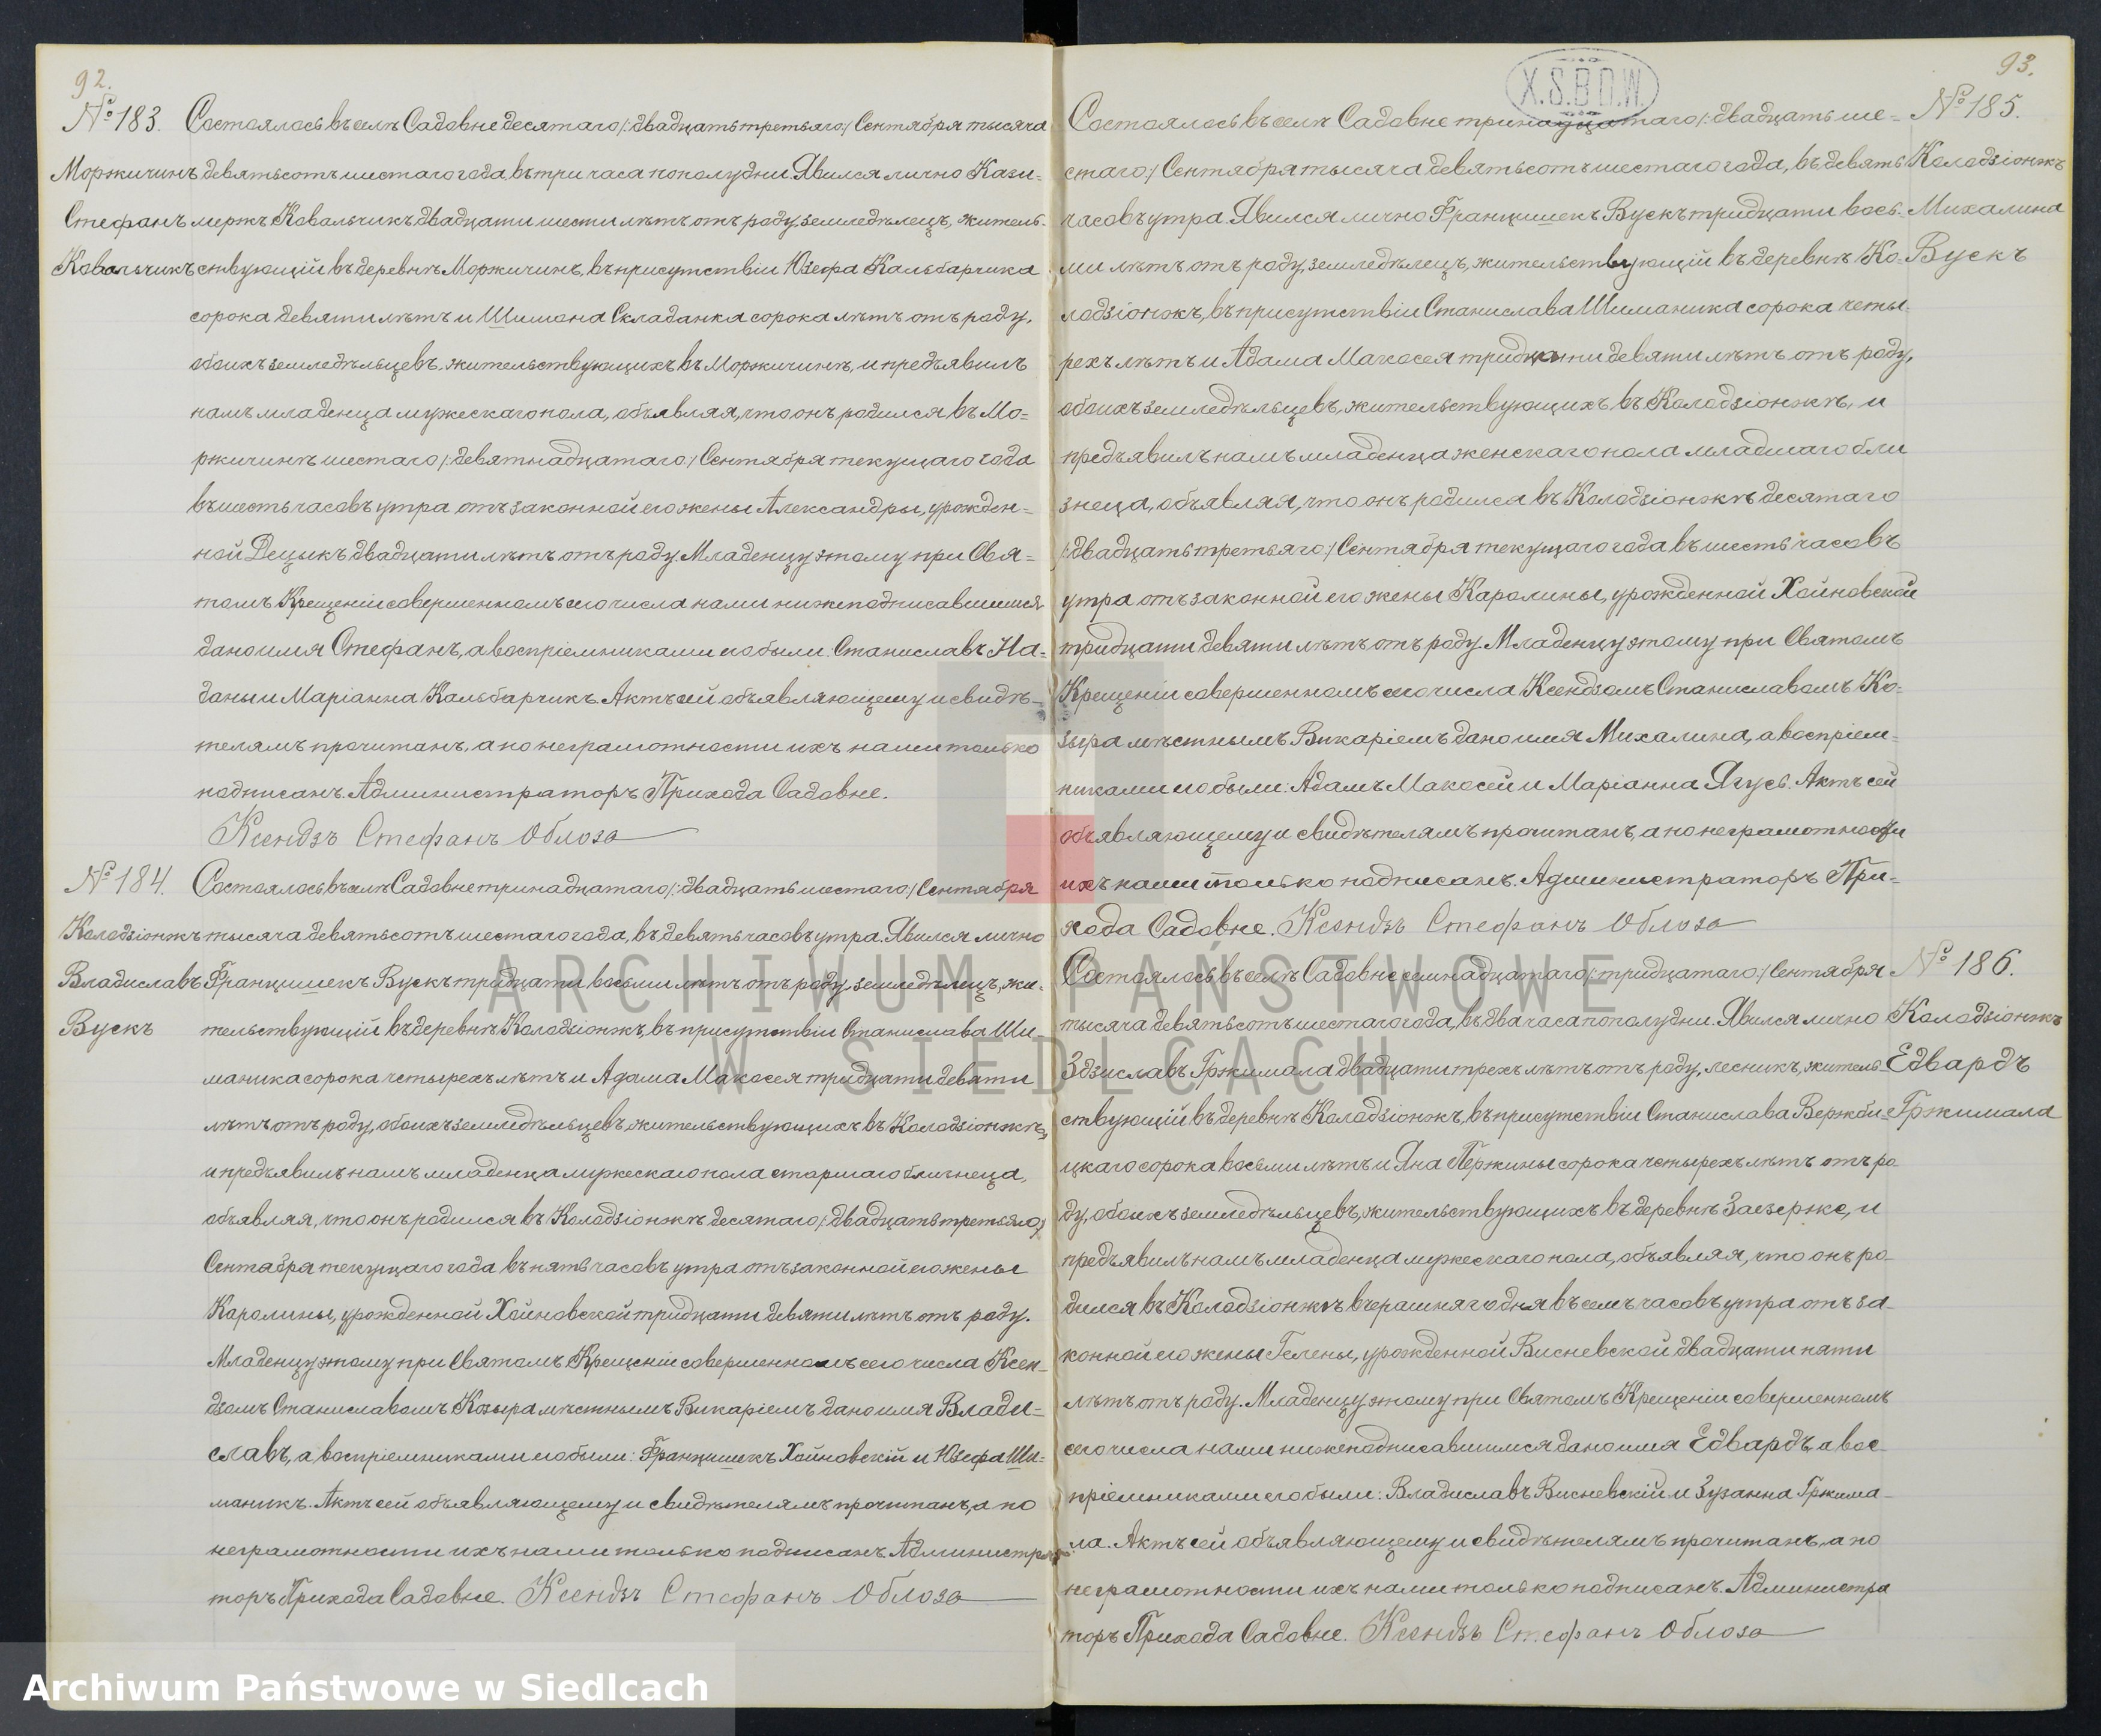 92.
№ 183. Состоялось въ селѣ Садовне десятаго /:двадцать третьяго:/ Сентября тысяча
Моржичинъ девятьсотъ шестаго года, въ три часа пополудни. Явился лично Кази-
Стефанъ мержъ Ковальчикъ, двадцати шести лѣтъ отъ роду, земледѣлецъ, житель-
Ковальчикъ ствующій въ деревнѣ Моржичинъ, въ присутствіи Юзефа Кальбарчика
сорока девяти лѣтъ и Шимона Складанка сорока лѣтъ отъ роду,
обоихъ земледѣльцевъ, жительствующихъ въ Моржичинѣ, и предъявилъ
намъ младенца мужескаго пола, объявляя, что онъ родился въ Мо-
ржичинѣ шестаго /:девятнадцатаго:/ Сентября текущаго года
въ шесть часовъ утра отъ законной его жены Александры, урожден-
ной Децыкъ двадцати лѣтъ отъ роду. Младенцу этому при Свя-
томъ Крещеніи совершенномъ сего числа нами нижеподписавшимся
дано имя Стефанъ, а воспріемниками его были: Станиславъ На-
даны и Маріанна Кальбарчикъ. Актъ сей объявляющему и свидѣ-
телямъ прочитанъ, а по неграмотности ихъ нами только
подписанъ. Администраторъ Прихода Садовне.
Ксендзъ Стефанъ Облоза
№ 184. Состоялось въ селѣ Садовне тринадцатаго /:двадцать шестаго:/ Сентября
Колодзіонжъ тысяча девятьсотъ шестаго года, въ девять часовъ утра. Явился лично
Владиславъ Францишекъ Вускъ тридцати восьми лѣтъ отъ роду, земледѣлецъ, жи-
Вускъ тельствующій въ деревнѣ Колодзіонжъ, въ присутствіи Станислава Ши-
маника сорока четырехъ лѣтъ и Адама Макосея тридцати девяти
лѣтъ отъ роду, обоихъ земледѣльцевъ, жительствующихъ въ Колодзіонжѣ,
и предъявилъ намъ младенца мужескаго пола старшаго близнеца,
объявляя, что онъ родился въ Колодзіонжѣ десятаго /:двадцать третьяго:/
Сентября текущаго года въ пять часовъ утра отъ законной его жены
Каролины, урожденной Хойновской тридцати девяти лѣтъ отъ роду.
Младенцу этому при Святомъ Крещеніи совершенномъ сего числа Ксен-
дзомъ Станиславомъ Козыра мѣстнымъ Викаріемъ дано имя Влади-
славъ, а воспріемниками его были: Францишекъ Хойновскій и Юзефа Ши-
маникъ. Актъ сей объявляющему и свидѣтелямъ прочитанъ, а по
неграмотности ихъ нами только подписанъ. Администра-
торъ Прихода Садовне. Ксендзъ Стефанъ Облоза
93.
X.S.B.D.W.
Состоялось въ селѣ Садовне тринадцатаго /:двадцать ше- № 185.
стаго:/ Сентября тысяча девятьсотъ шестаго года, въ девять Колодзіонжъ
часовъ утра. Явился лично Францишекъ Вускъ тридцати вось- Михалина
ми лѣтъ отъ роду, земледѣлецъ, жительствующій въ деревнѣ Ко- Вускъ
лодзіонжъ, въ присутствіи Станислава Шиманика сорока четы-
рехъ лѣтъ и Адама Макосея тридцати девяти лѣтъ отъ роду,
обоихъ земледѣльцевъ, жительствующихъ въ Колодзіонжѣ, и
предъявилъ намъ младенца женскаго пола младшаго бли
знеца, объявляя, что онъ родился въ Колодзіонжѣ десятаго
/:двадцать третьяго:/ Сентября текущаго года въ шесть часовъ
утра отъ законной его жены Каролины, урожденной Хойновской
тридцати девяти лѣтъ отъ роду. Младенцу этому при Святомъ
Крещеніи совершенномъ сего числа Ксендзомъ Станиславомъ Ко-
зыра мѣстнымъ Викаріемъ дано имя Михалина, а воспріем-
никами его были: Адамъ Макосей и Маріанна Ягусь. Актъ сей
объявляющему и свидѣтелямъ прочитанъ, а по неграмотности
ихъ нами только подписанъ. Администраторъ При-
хода Садовне. Ксендзъ Стефанъ Облоза
Состоялось въ селѣ Садовне семнадцатаго /:тридцатаго:/ Сентября № 186.
тысяча девятьсотъ шестаго года, въ два часа пополудни. Явился лично Колодзіонжъ
Здзиславъ Гржимала двадцати трехъ лѣтъ отъ роду, лесникъ, житель- Едвардъ
ствующій въ деревнѣ Колодзіонжъ, въ присутствіи Станислава Вержби- Гржимала
цкаго сорока восьми лѣтъ и Яна Пержины сорока четырехъ лѣтъ отъ ро
ду, обоихъ земледѣльцевъ, жительствующихъ въ деревнѣ Заезержe, и
предъявилъ намъ младенца мужескаго пола, объявляя, что онъ ро-
дился въ Колодзіонжѣ вчерашняго дня въ семь часовъ утра отъ за-
конной его жены Гелены, урожденной Висневской двадцати пяти
лѣтъ отъ роду. Младенцу этому при Святомъ Крещеніи совершенномъ
сего числа нами нижеподписавшимся дано имя Едвардъ, а вос-
пріемниками его были: Владиславъ Висневскій и Зузанна Гржима-
ла. Актъ сей объявляющему и свидѣтелямъ прочитанъ, а по
неграмотности ихъ нами только подписанъ. Администра
торъ Прихода Садовне. Ксендзъ Стефанъ Облоза
ARCHIWUM PAŃSTWOWE
W SIEDLCACH
Archiwum Państwowe w Siedlcach